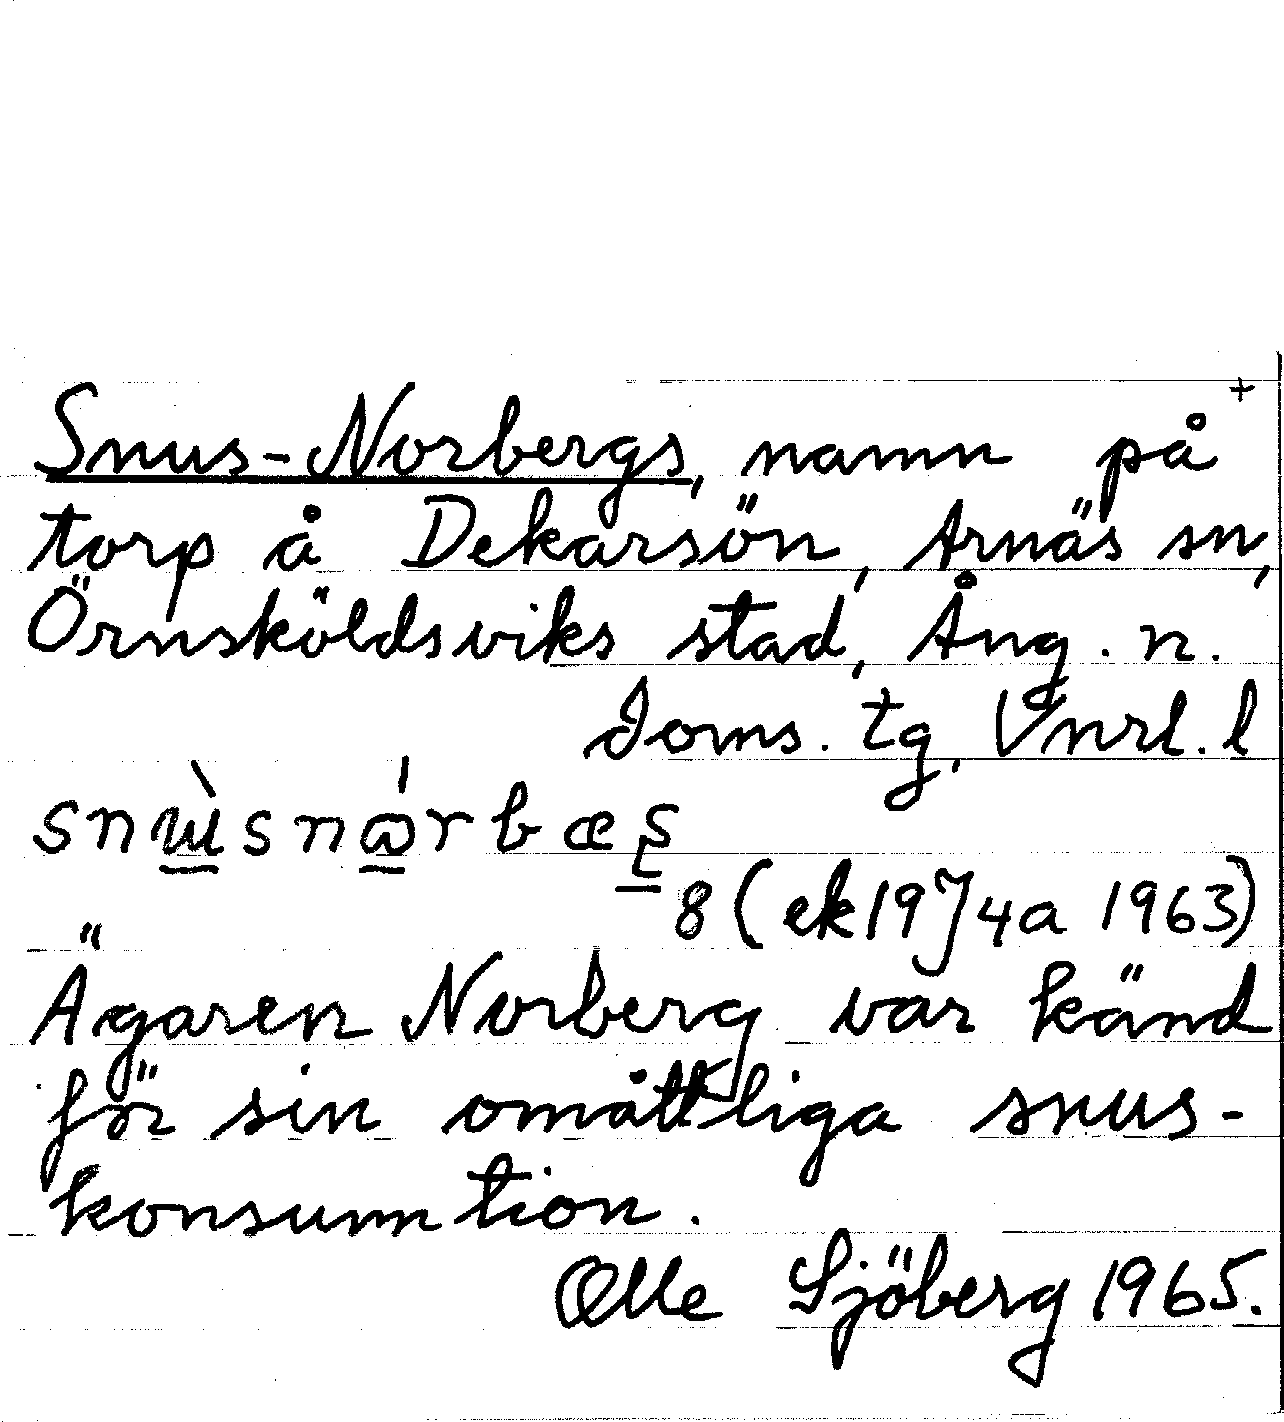 +
Snus-Norbergs, namn på
torp å Dekarsön, Arnäs sn,
Örnsköldsviks stad, Ång. n.
Joms. tg, Vnrl. l
8 (ek19J4a 1963)
Ägaren Norberg var känd
för sin omåttliga snus-
konsumtion.
Olle Sjöberg 1965.